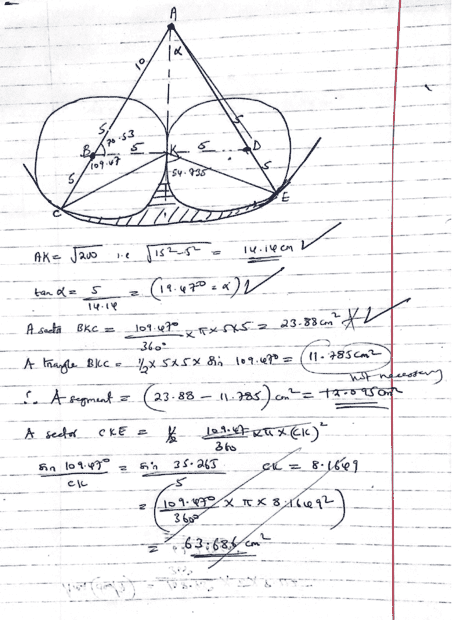 A
α
10
5
5
70.53
B
5
K
5
D
109.47
54.735
5
5
C
E
AK = √200 i.e √15²-5² = 14.14cm ✓
tan α = 5/14.14 = (19.47° = α) ✓
A sector BKC = 109.47°/360° × π × 5×5 = 23.88cm² ✓
A triangle BKC = ½ × 5 × 5 × Sin 109.47° = 11.785cm²
not necessary
∴ A segment = (23.88 - 11.785) cm² = 12.095cm²
A sector CKE = 109.47/360 × π × (CK)²
Sin 109.47°/CK = Sin 35.265/5 CK = 8.1649
= (109.47°/360° × π × 8.1649²)
= 63.686 cm²